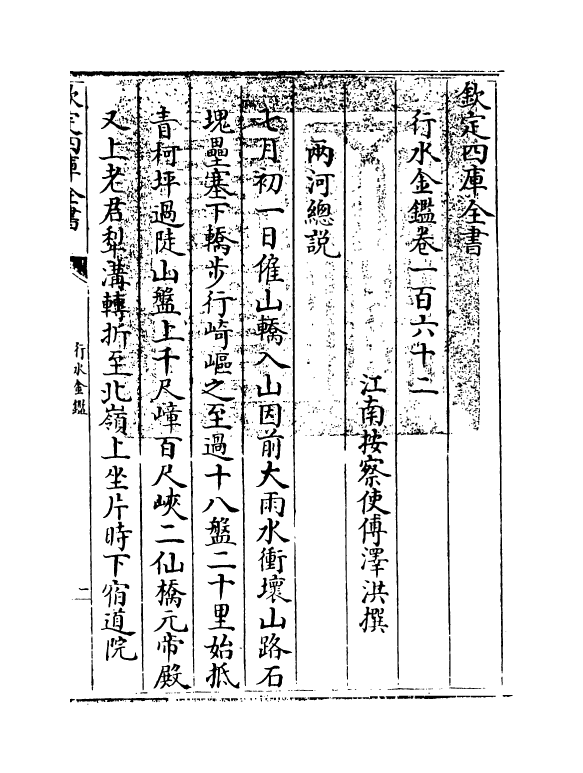 欽定四庫全書
行水金鑑卷一百六十二
江南按察使傅澤洪撰
兩河總說
七月初一日僱山轎入山因前大雨水衝壞山路石
塊壘塞下轎步行崎嶇之至過十八盤二十里始抵
青柯坪過陡山盤上千尺㠉百尺峽二仙橋元帝殿
又上老君犁溝轉折至北嶺上坐片時下宿道院
欽定四庫全書
行水金鑑
二